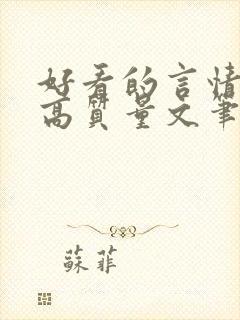 好看的言情
高质量文笔
蘇菲